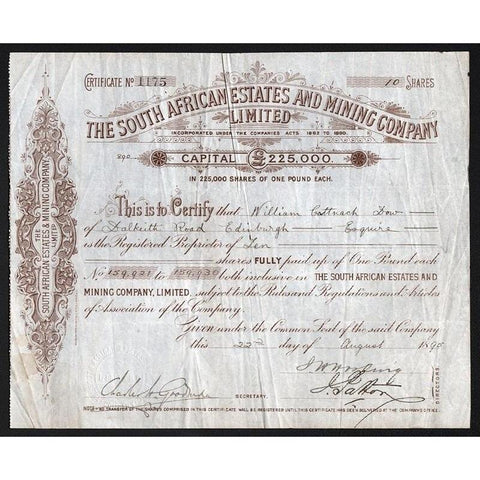 CERTIFICATE Nº 1175 10 SHARES
THE SOUTH AFRICAN ESTATES AND MINING COMPANY
LIMITED
INCORPORATED UNDER THE COMPANIES ACTS 1862 TO 1890.
CAPITAL £225,000.
IN 225,000 SHARES OF ONE POUND EACH.
This is to Certify that William Cattnach Dow
of Dalkeith Road Edinburgh Esquire
is the Registered Proprietor of Ten
shares FULLY paid up of One Pound each
Nº 159,921 to 159,930 both inclusive in THE SOUTH AFRICAN ESTATES AND
MINING COMPANY, LIMITED, subject to the Rules and Regulations and Articles
of Association of the Company.
Given under the Common Seal of the said Company
this 22nd day of August 1895
DIRECTORS
SECRETARY.
NOTE—NO TRANSFER OF THE SHARES COMPRISED IN THIS CERTIFICATE WILL BE REGISTERED UNTIL THIS CERTIFICATE HAS BEEN DELIVERED AT THE COMPANY'S OFFICE.
THE
SOUTH AFRICAN ESTATES & MINING COMPANY,
LIMITED